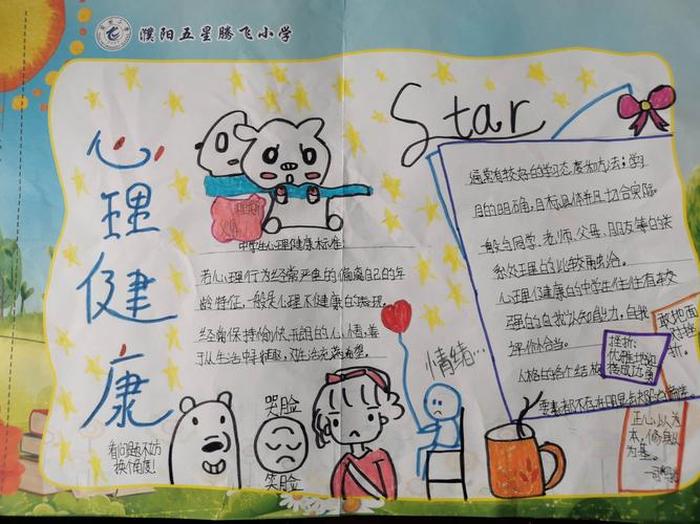 濮阳五星腾飞小学
Star
心理健康
中学生心理健康标准:
若心理行为经常严重的偏离自己的年
龄特征,一般是心理不健康的表现。
经常保持愉快、开朗的心情,善
于从生活中寻找乐趣,对生活充满希望。
通常有较好的学习态度和方法;学习
目的明确,目标具体并且切合实际
般与同学、老师、父母、朋友等的关
系处理的比较融洽。
心理健康的中学生往往有本较
强的自我认知能力,自我
评价恰当。
人格的各个结构
要素都不存在明显
情绪…
挫折:
优雅地
敢地面
对挫
折。
正心以为
本,修身以
为基。
看问题不妨
换个角度!
哭脸
笑脸